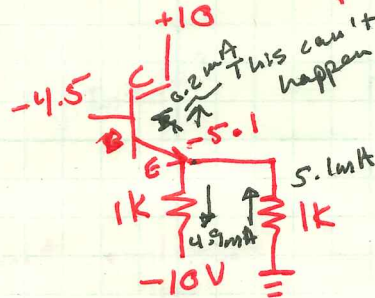 +10
C
0.2mA
This can't
happen
-4.5
B
-5.1
E
5.1mA
1K
4.9mA
1K
-10V